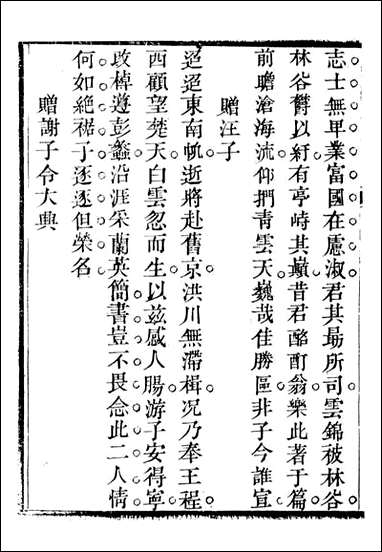 志士無卑業富國在慝淑君其最所司雲錦被林谷
林谷欝以紆有亭峙其嶺昔君酩酊翁樂此著于篇
前瞻滄海流仰捫靑雲天巍哉佳勝區非子今誰宜
贈汪子
迢迢東南帆逝將赴舊京洪川無滯楫况乃奉王程
西顧望楚天白雲忽而生以玆感人腸游子安得寧
改棹遵彭蠡沿涯采蘭英簡書豈不畏念此二人情
何如絶裾子逐逐但榮名
贈謝子令大興